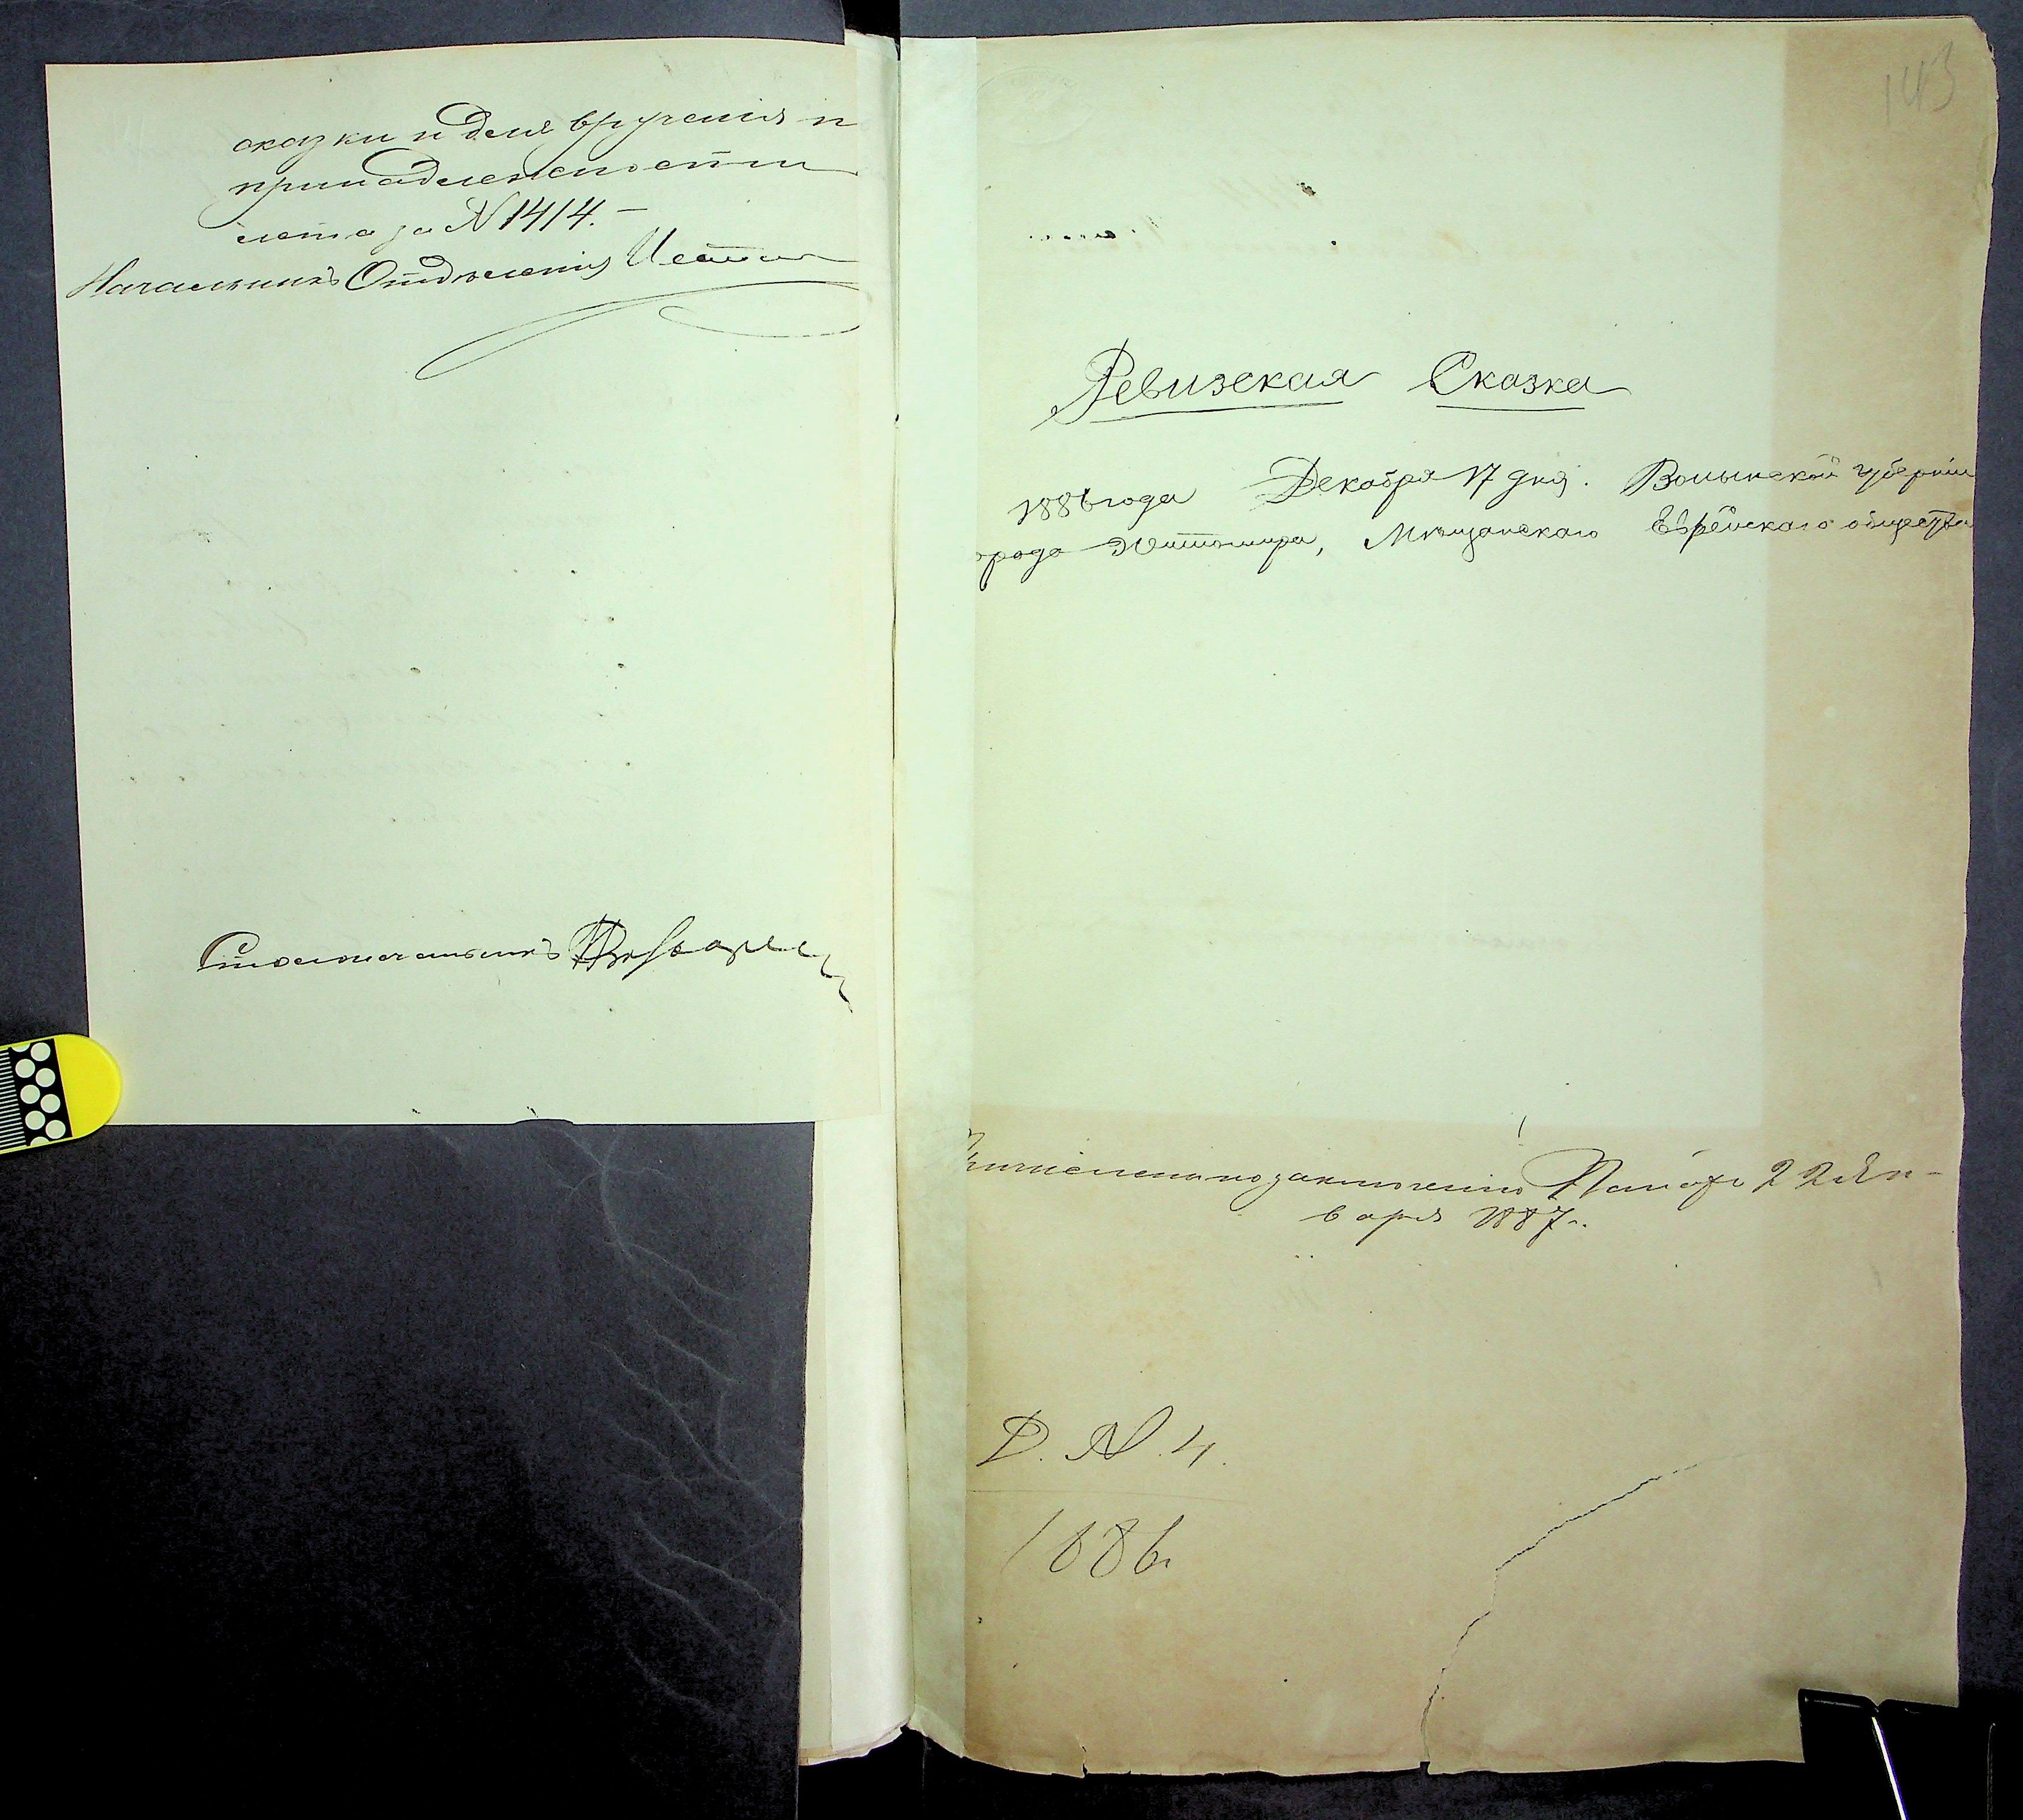 сказки и для врученія п
принадлежности
лета за № 1414.—
Начальникъ Отдѣленія
Столоначальникъ
143
Ревизская Сказка
1886 года Декабря 17 дня. Волынской губерніи
орода Житомира, Мѣщанскаго Еврейскаго общества
по заключенію Палаты 22 Ян-
варя 1887 г.
Д. № 4.
1886 г.